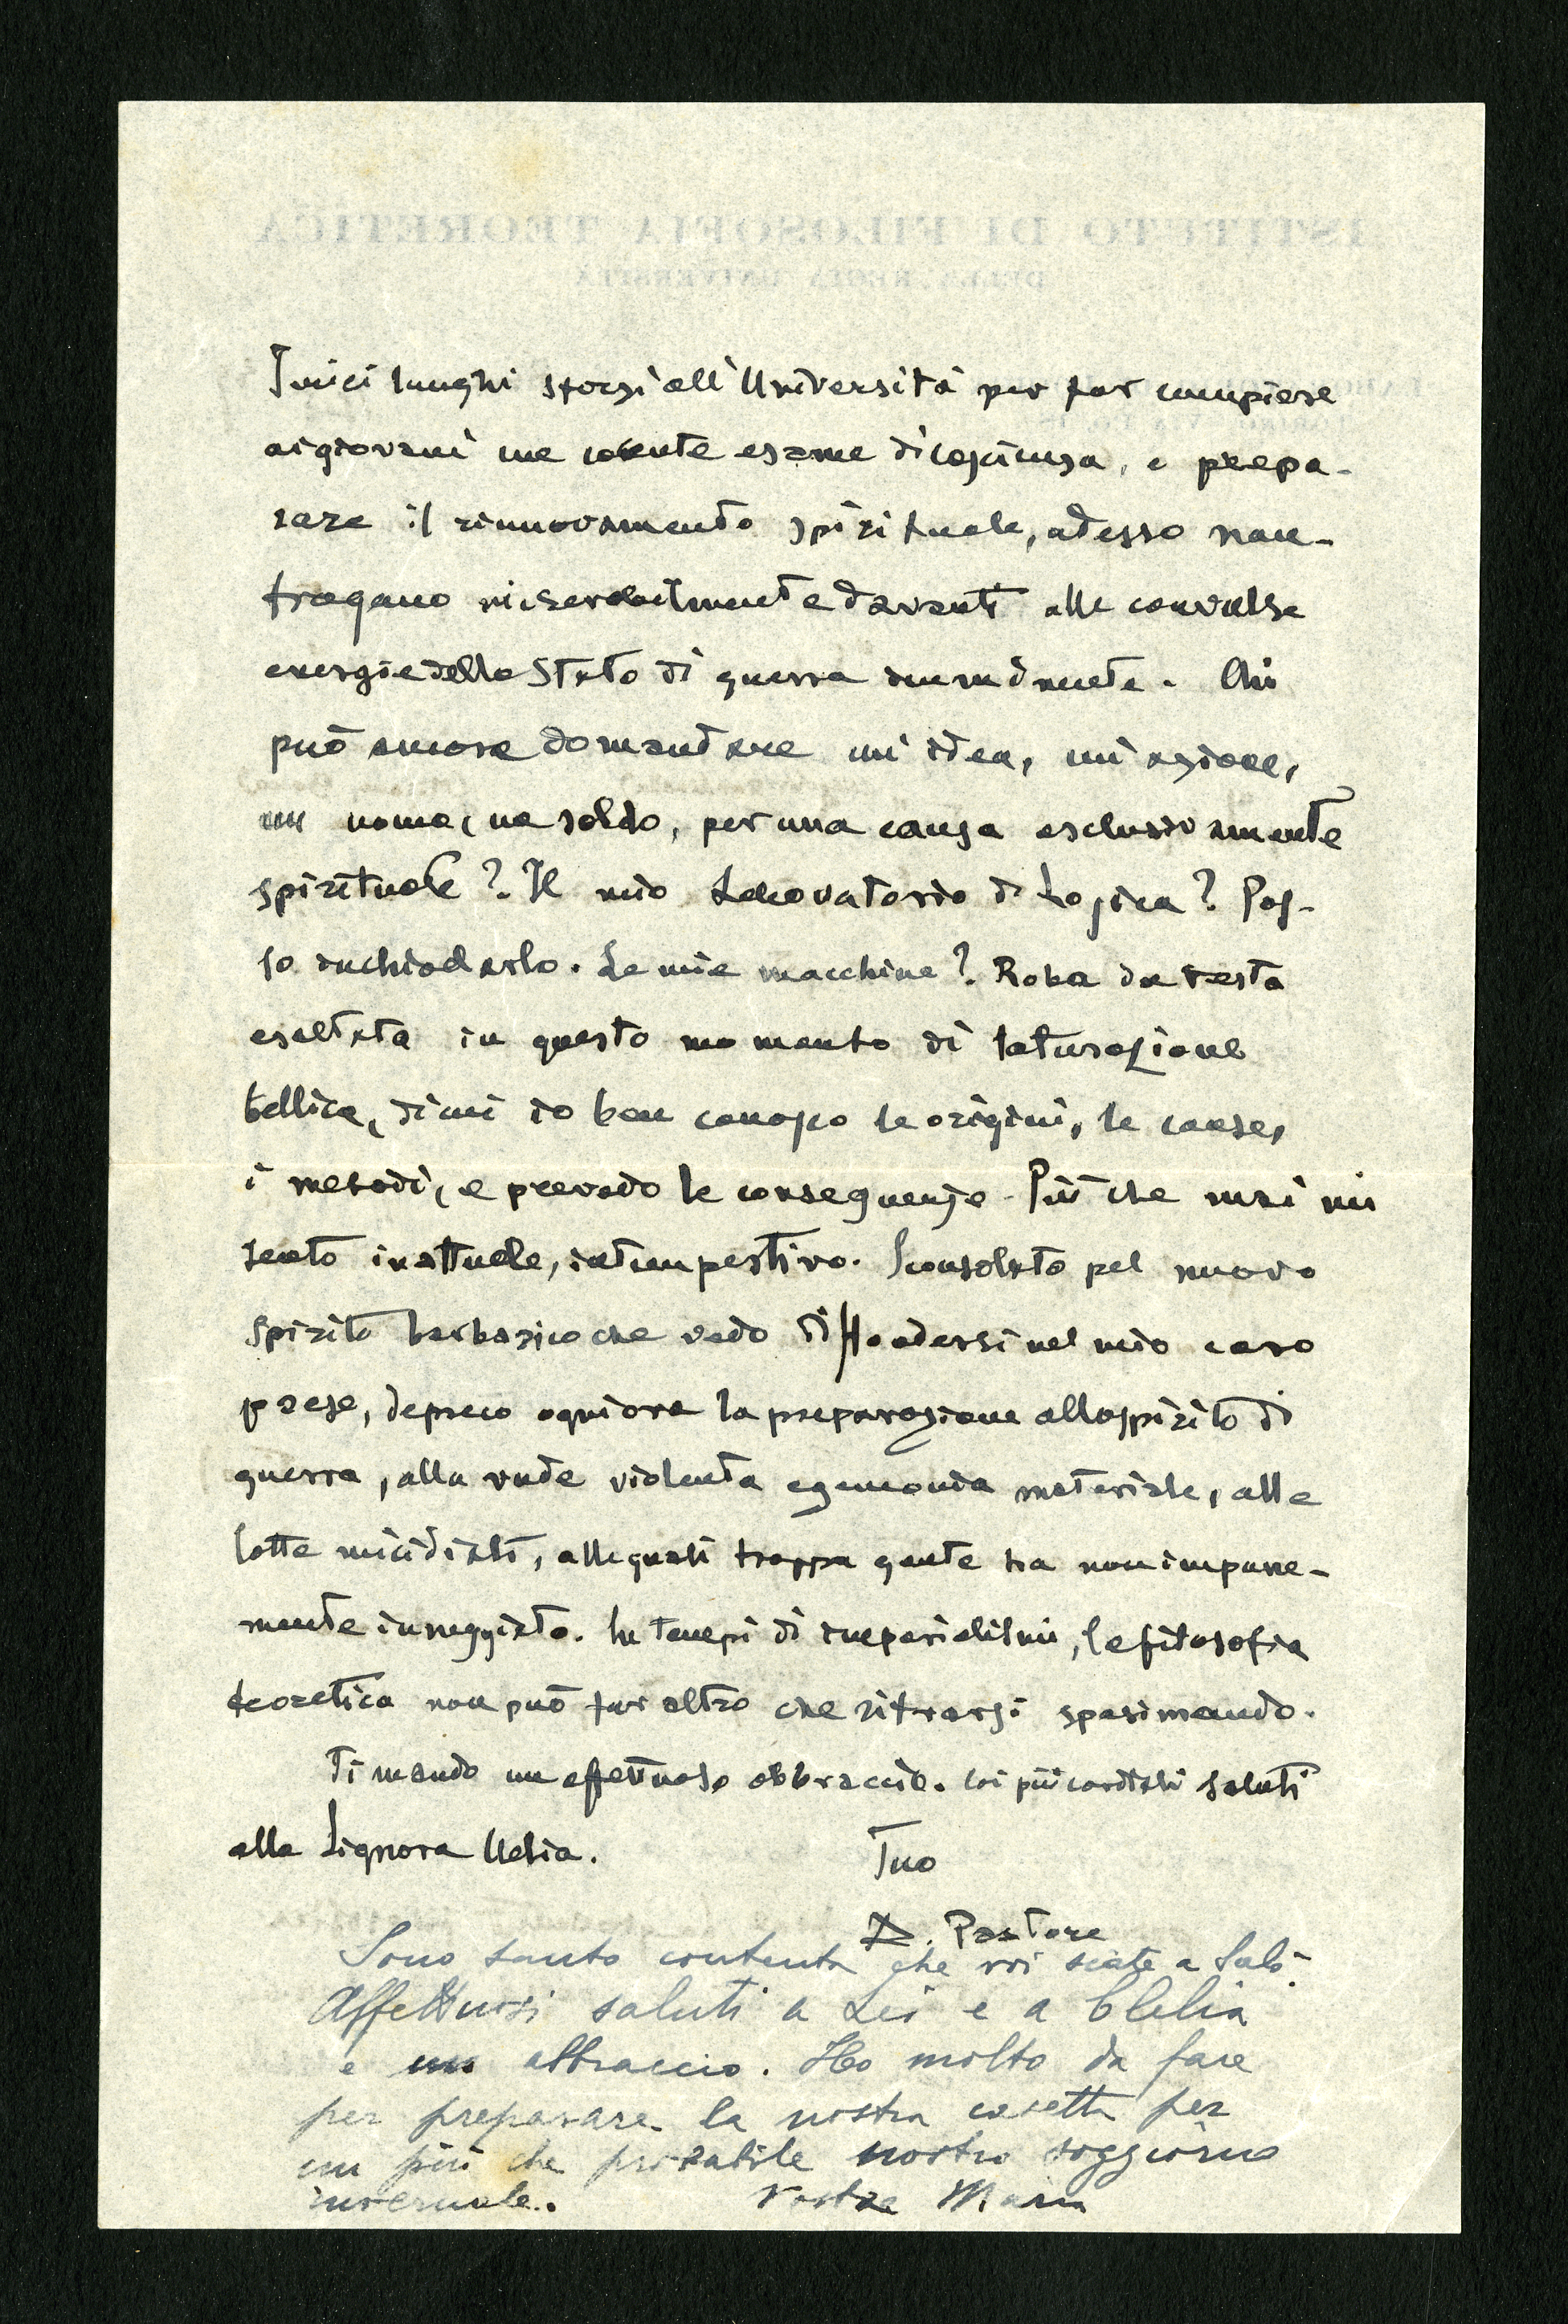 ISTITUTO DI FILOSOFIA TEORETICA
DELLA REGIA UNIVERSITÀ
I miei lunghi sforzi all'Università per far compiere
ai giovani un esame di coscienza, e prepa-
rare il rinnovamento spirituale, adesso nau-
fragano miserabilmente davanti alle convulse
energie dello Stato di guerra imminente. Chi
può ancora domandare un'idea, un'azione,
un nome, un soldo, per una causa esclusivamente
spirituale? Il mio Laboratorio di Logica? Pos-
so inchiodarlo. Le mie macchine? Roba da testa
esaltata in questo momento di saturazione
bellica, di cui io ben conosco le origini, le cause,
i metodi, e prevedo le conseguenze. Più che mai mi
sento inattuale, intempestivo. Sconsolato pel nuovo
spirito barbarico che vedo diffondersi nel mio caro
paese, depreco ogni ora la preparazione allo spirito di
guerra, alla rude violenta egemonia materiale, alle
lotte micidiali, alle quali troppa gente ha non impune-
mente inneggiato. In tempi di imperialismi, la filosofia
teoretica non può far altro che ritrarsi spasimando.
Ti mando un affettuoso abbraccio. Coi più cordiali saluti
alla Signora Clelia. Tuo
A. Pastore
Sono tanto contenta che voi siate a Salò.
Affettuosi saluti a Lei e a Clelia
e un abbraccio. Ho molto da fare
per preparare la nostra casetta per
un più che probabile nostro soggiorno
invernale. Vostra Maria